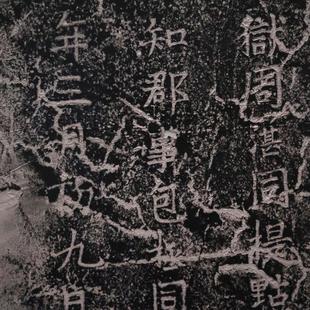 獄周湛同提點
知郡事包拯同
年三月初九日